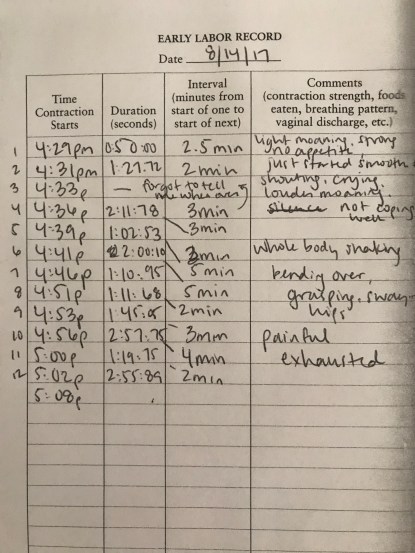 EARLY LABOR RECORD
Date 8/14/17
Time Contraction Starts | Duration (seconds) | Interval (minutes from start of one to start of next) | Comments (contraction strength, foods eaten, breathing pattern, vaginal discharge, etc.)
1 4:29pm 0:50:00 2.5min light moaning, strong no appetite
2 4:31pm 1:27.72 2min just started smooth
3 4:33p — forgot to tell me when over shouting, crying, louder moaning
4 4:36p 2:11:78 3min not coping well
5 4:39p 1:02:53 3min
6 4:41p 2:00:10 min whole body shaking
7 4:46p 1:10.95 5min bending over,
8 4:51p 1:11:68 5min grasping, sway
9 4:53p 1:45.05 2min hips
10 4:56p 2:57.75 3min painful
11 5:00p 1:19.75 4min exhausted
12 5:02p 2:55:89 2min
5:08p